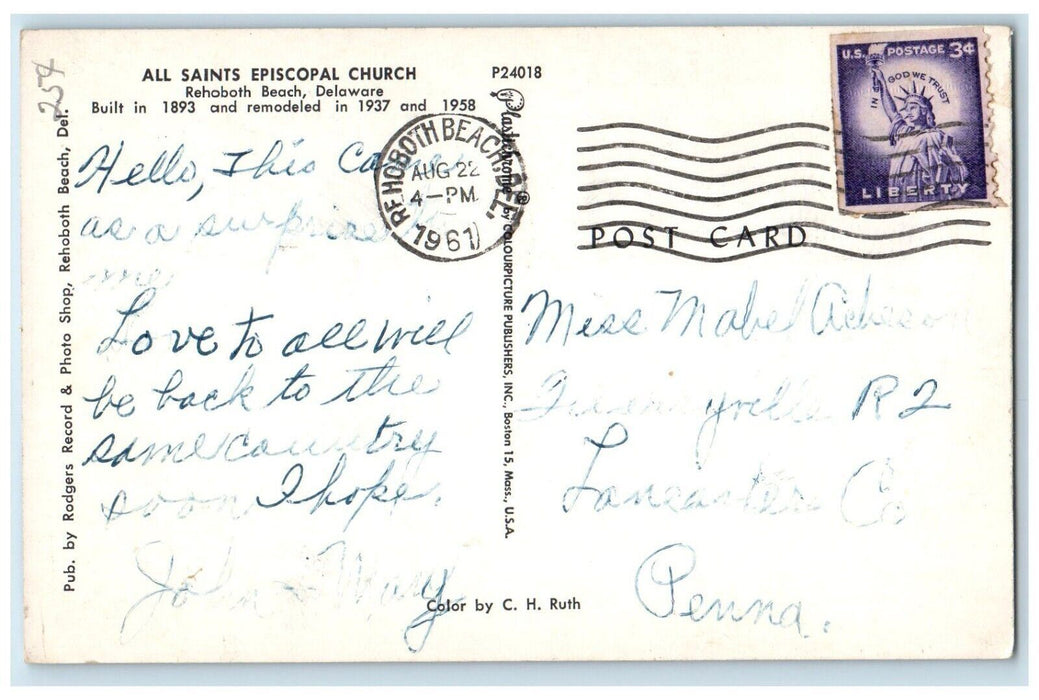 254
ALL SAINTS EPISCOPAL CHURCH
Rehoboth Beach, Delaware
Built in 1893 and remodeled in 1937 and 1958
P24018
Pub. by Rodgers Record & Photo Shop, Rehoboth Beach, Del.
Hello, This came
as a surprise to
me
Love to all will
be back to the
same country
soon I hope.
John & Mary
Color by C. H. Ruth
REHOBOTH BEACH, DEL.
AUG 22
4-PM
1961
Plastichrome ® by COLOURPICTURE PUBLISHERS, INC., Boston 15, Mass., U.S.A.
U.S. POSTAGE 3¢
IN GOD WE TRUST
LIBERTY
POST CARD
Miss Mabel Acheson
R2
Lancaster Co
Penna.